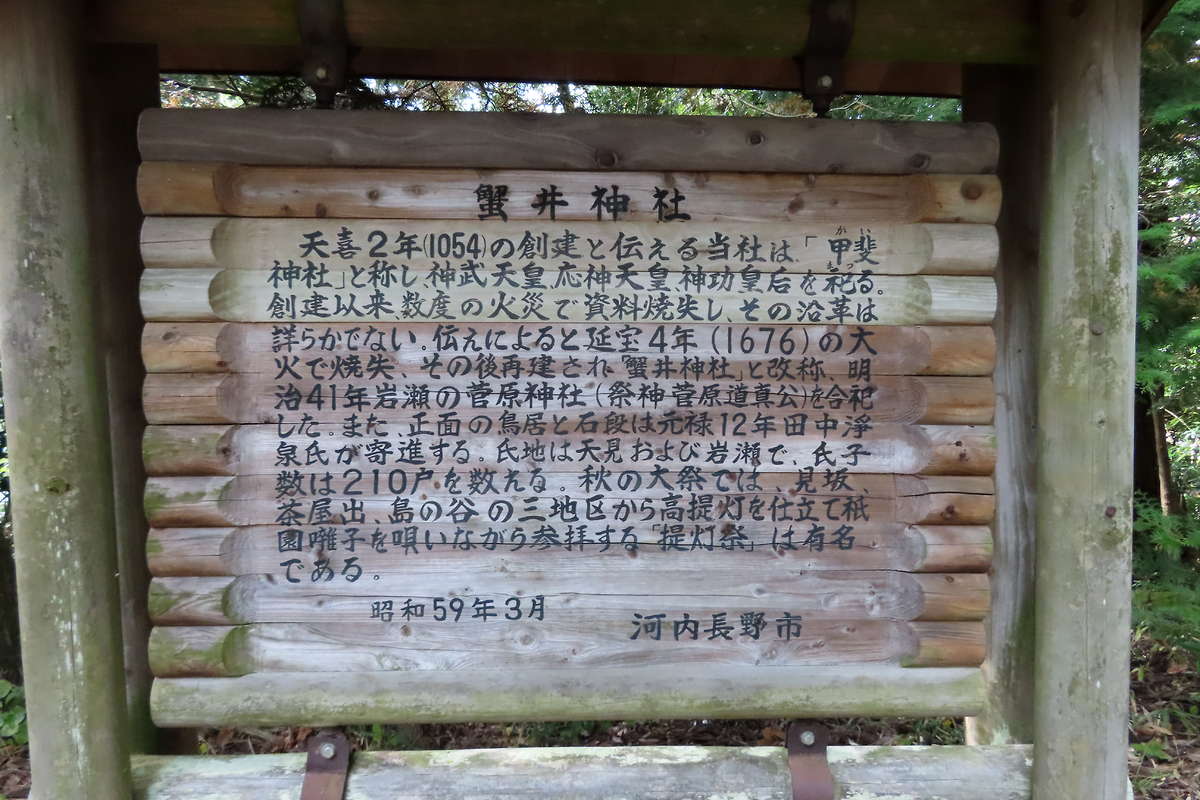 蟹井神社
天喜2年(1054)の創建と伝える当社は、「甲斐
神社」と称し、神武天皇、応神天皇、神功皇后を祀る。
創建以来、数度の火災で資料焼失し、その沿革は
詳らかでない。伝えによると延宝4年(1676)の大
火で焼失、その後再建され「蟹井神社」と改称、明
治41年岩瀬の菅原神社(祭神菅原道真公)を合祀
した。また、正面の鳥居と石段は元禄12年田中浄
泉氏が寄進する。氏地は天見および岩瀬で、氏子
数は210戸を数える。秋の大祭では、見坂、
茶屋出、島の谷の三地区から高提灯を仕立て祇
園囃子を唄いながら参拝する「提灯祭」は有名
である。
昭和59年3月
河内長野市